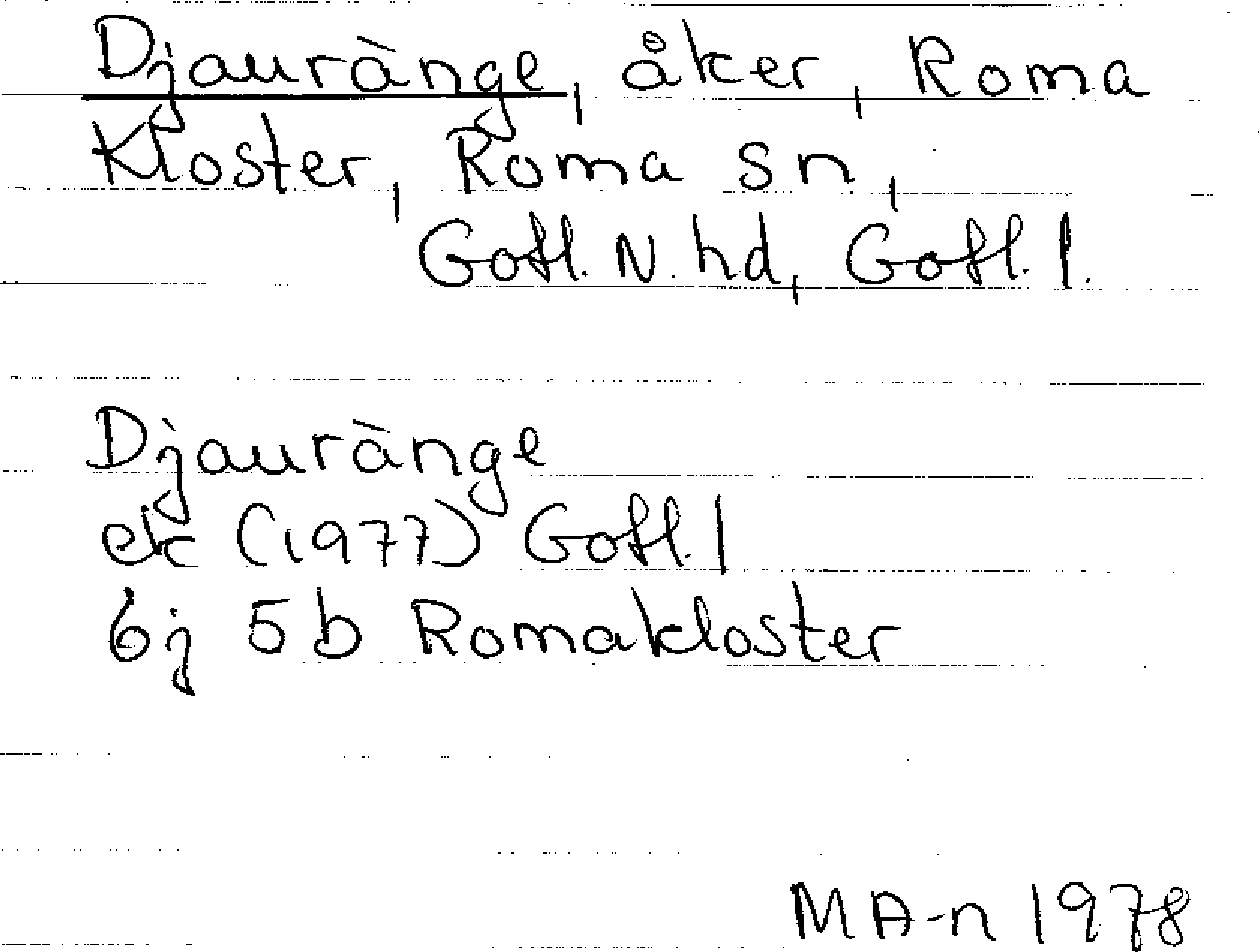 Djauränge, åker, Roma
Kloster, Roma sn,
Gotl. N. hd, Gotl. l.
Djauränge
ek (1977) Gotl. l
6j 5b Romakloster
MA-n 1978